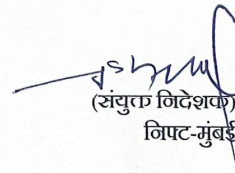 (संयुक्त निदेशक)
निफ्ट-मुंबई